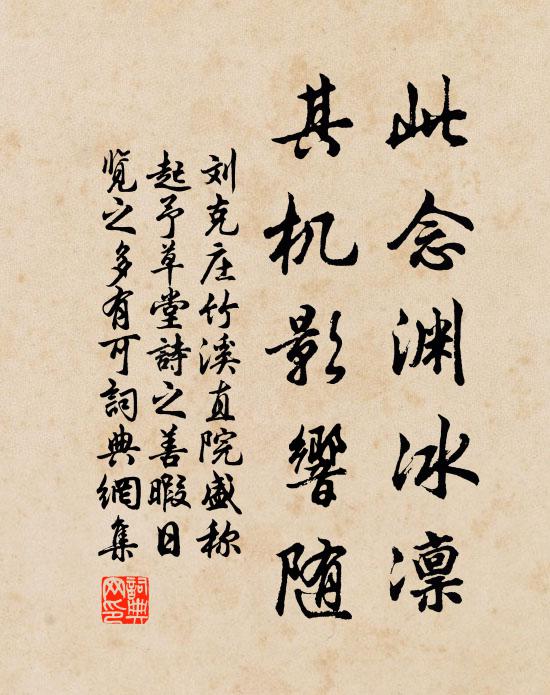 此念渊冰凛
其机影響随
刘克庄竹溪直院盛称
起予草堂詩之善暇日
览之多有可詞典網集
詞典網印